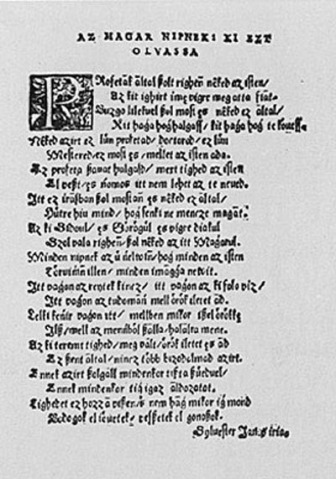 AZ MAGAR NIPNEK KI EZT
OLVASSA
PRofeták által szolt righen néked az isten,
Az kit ighirt ime vigre megatta fiát.
Buzgo lilekuel szol most es néked ez által,
Kit hagha hogh halgass, kit hagha hogh te kouess.
Néked azirt ez lün prófétád, doktorod, ez lün
Mestered, ez most es, mellet az isten ada.
Ez profeta szauat halgasd, mert tighed az isten
El veszt, es nomos itt nem lehet az te neued.
Itt ez irásban szol mostan es néked ez által,
Hütre hiu mind, hogh senki ne mencze magát.
Az ki Sidoul, es Görögül es vigre diakul
Szol vala righen, szol néked az itt Magarul.
Minden nipnek az ü neluin, hogh minden az isten
Töruinin illen, minden imagga neuit.
Itt vagon az reitek kincz, itt vagon az kifolo viz,
Itt vagon az tudomán mell örök iletet ad.
Lelki kenir vagon itt, melben mikor iszel örökke
Ilsz, mell az menibol szálla, halálra mene.
Az ki teremt tighed, megh vált, örök iletet es ád
Ez szent által, nincz több bizodalmad azirt.
Ennek azirt szolgáll mindenkor tiszta szüuedvel,
Ennek mindenkor tighigaz áldozatot.
Tighedet ez hozzá veszen, es nem hágh mikor igh mond
Boldogok el iöuetek, vesszetek el gonoszok.
Syluester Janos irta.